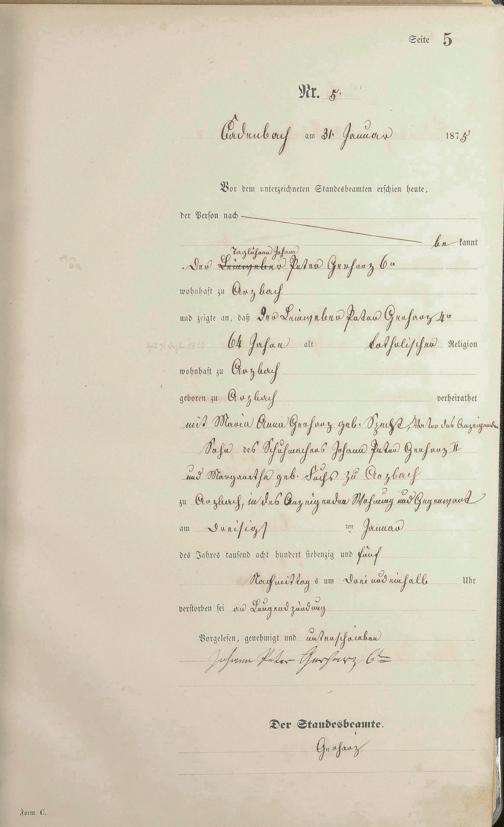 Seite 5
Nr. 5.
Cadenbach am 31. Januar 1875
Vor dem unterzeichneten Standesbeamten erschien heute,
der Person nach
be kannt
Taglöhner Johann
Der Leinweber Peter Gerharz 6r
wohnhaft zu Arzbach
und zeigte an, daß der Leinweber Peter Gerharz 4r
64 Jahre alt katholischer Religion
wohnhaft zu Arzbach
geboren zu Arzbach verheirathet
mit Maria Anna Gerharz geb. Vater des Anzeigenden
Sohn des Schuhmachers Johann Peter Gerharz II
und Margaretha geb. Fuchs zu Arzbach
zu Arzbach, in des Anzeigenden Wohnung und Gegenwart
am Dreisigst ten Januar
des Jahres tausend acht hundert siebenzig und fünf
Nachmittags um Drei und einhalb Uhr
verstorben sei an Lungenzündung
Vorgelesen, genehmigt und unterschrieben
Johann Peter Gerharz 6r
Der Standesbeamte.
Gerharz
Form C.